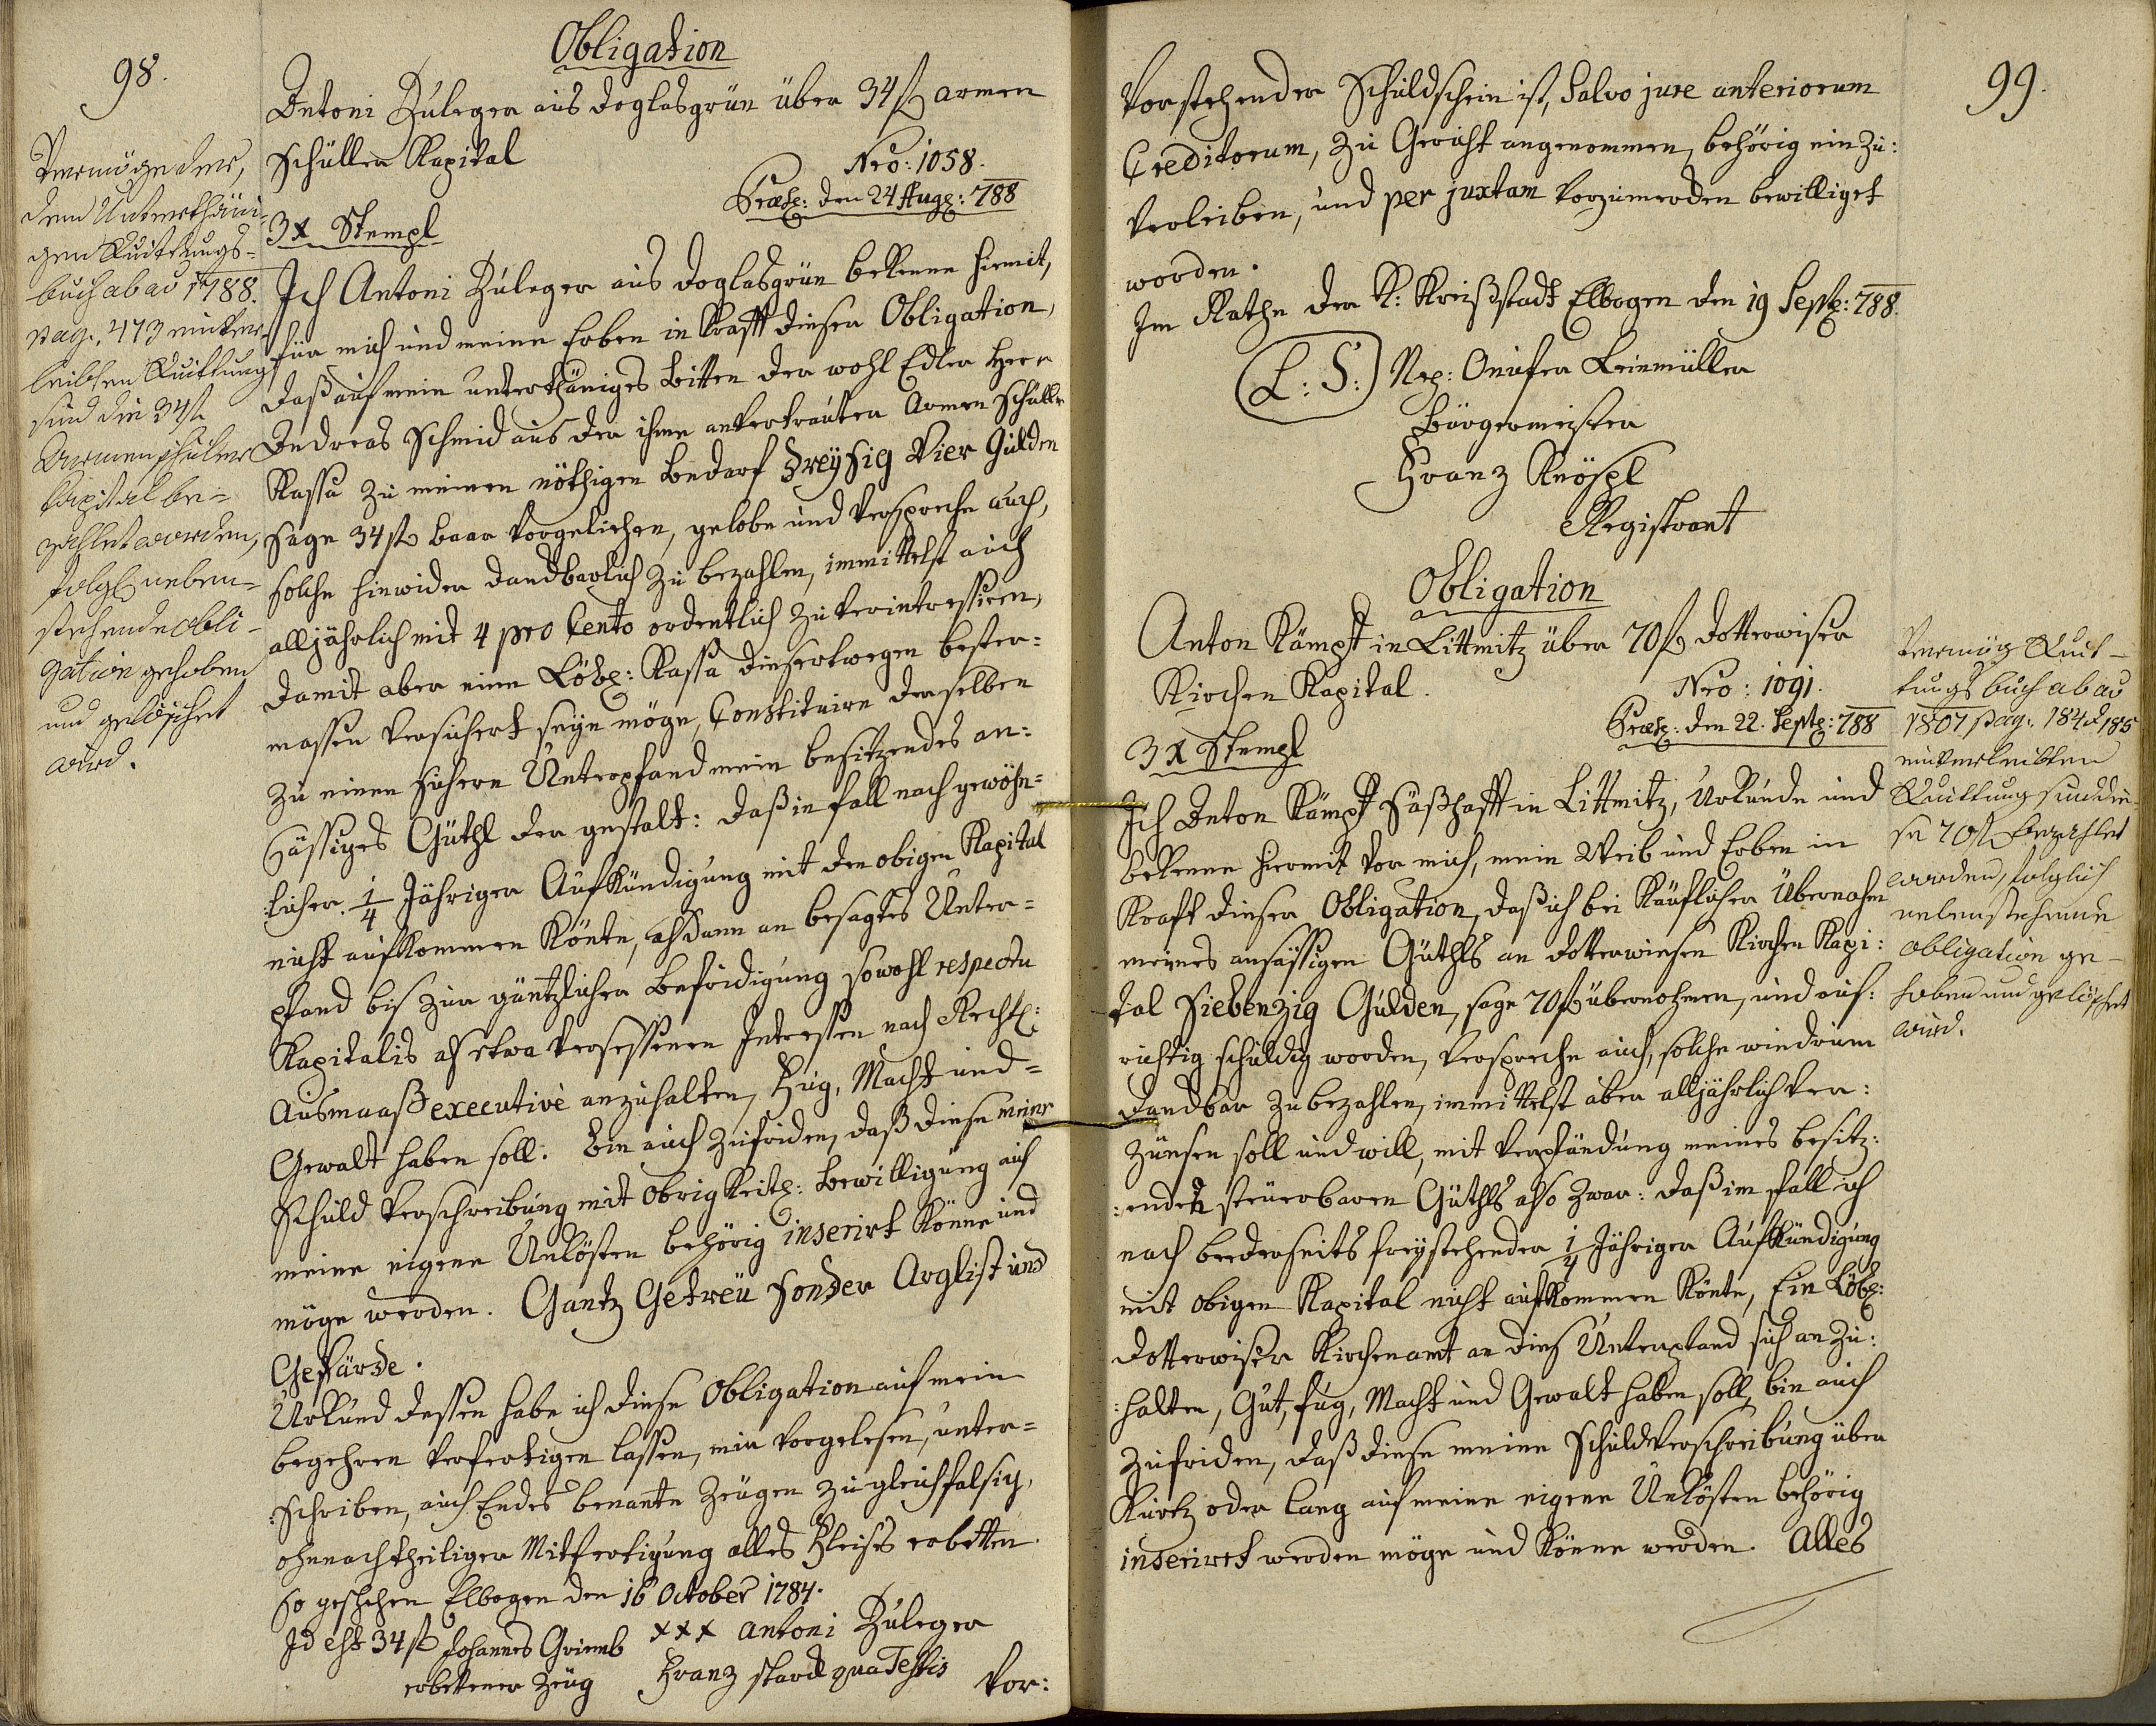 98.
Obligation
Antoni Züleger aus Doglasgrün über 34 fl armen
Schüller Kapital
Nro: 1058.
Præs: den 24 Aug: 788
3 x Stempl
Ich Antoni Züleger aus Doglasgrün bekenne hiemit,
für mich und meine Erben in krafft dieser Obligation,
daß auf mein unterthäniges bitten der wohl Edler Herr
Andreas Schmid aus der ihme anvertrauten Armen Schuller
Kassa zu meinen nöthigen bedarf Dreyßig Vier Gulden
sage 34 fl baar vorgeliehen, gelobe und verspreche auch,
solche hinwider danckbarlich zu bezahlen, immittelst auch
alljährlich mit 4 pro Cento ordentlich zu verintressiren,
damit aber eine Löbl: Kassa diesertwegen bester-
massen versichert seyn möge, Constituire derselben
zu einen sichern Unterpfand mein besitzendes an-
säßiges Güthl der gestalt: daß in fall nach gewöhn-
:licher 1/4 Jähriger Aufkündigung mit den obigen Kapital
nicht aufkommen könte, alsdann an besagtes Unter-
pfand bis zur gäntzlicher befridigung sowohl respectu
Kapitalis als etwa versessenen Interessen nach Rechtl:
Ausmaaß executivè anzuhalten, Fug, Macht und-
Gewalt haben soll. bin auch zufriden, daß diese meine
Schuld Verschreibung mit Obrigkeitl: bewilligung auf
meine eigene Unkösten behörig inserirt könne und
möge werden. Gantz Getreu sonder Arglist und
Gefärde.
Urkund dessen habe ich diese Obligation auf mein
begehren verfertigen lassen, mir vorgelesen, unter-
:schriben, auch Endes benante Zeugen zu gleichfalsig,
ohnnachtheiliger Mitfertigung alles Fleises erbetten.
so geschehen Elbogen den 16 October 1784.
Id est 34 fl Johannes Grimb xxx Antoni Züleger
erbettener Zeug Franz Starck qua Testis
Vor:
Vermög der,
dem Unterthäni-
gen Quittungs-
buch ab ao 1788.
pag. 473 einver-
leibten Quittung
sind die 34 fl
Armenschüler
Capital be-
zahlet worden,
folgl neben-
stehende obli-
gation gehoben
und gelöschet
wird.
99.
Vorstehender Schuldschein ist, Salvo jure anteriorum
Creditorum, zu Gericht angenommen, behörig ein zu:
verleiben, und per juxtam vorzumerken bewilliget
worden.
Im Rathe der K: Kreißstadt Elbogen den 19 Sept: 788.
(L: S:) Nep: Onufer Leinmüller
Bürgermeister
Franz Knöspl
Registrant
Obligation
Anton Kämpf in Littmitz über 70 fl Dotterwiser
Kirchen Kapital.
Nro: 1091.
Præs: den 22. Sept: 788
3 x Stempl
Ich Anton Kämpf säßhafft in Littmitz, Urkunde und
bekenne hiermit vor mich, mein Weib und Erben in
Kraft dieser Obligation, daß ich bei käuflicher Übernahm
meines ansässigen Güthls an Dotterwieser Kirchen Kapi:
tal Siebenzig Gulden, sage 70 fl übernohmen, und auf:
richtig schuldig worden, verspreche auch, solche wiedrum
danckbar zu bezahlen, immittelst aber alljährlich ver:
zünsen soll und will, mit Verpfändung meines besitz:
:enden steuerbaren Güthls also zwar: daß im fall ich
nach beederseits freystehender 1/4 Jähriger Aufkündigung
mit obigen Kapital nicht aufkommen könte, Ein Löbl:
Dotterwiser Kirchenamt an dies Unterpfand sich an zu:
:halten, Gut, fug, Macht und Gewalt haben soll, bin auch
zufriden, daß diese meine Schuldverschreibung über
kurtz oder lang auf meine eigene Unkösten behörig
inserirt werden möge und könne werden. Alles
Vermög Quit-
tungsbuch ab ao
1807 pag. 184 et 185
einverleibten
Quittung sind die-
se 70 fl bezahlet
worden, folglich
nebenstehende
obligation ge-
hoben und gelöschet
wird.